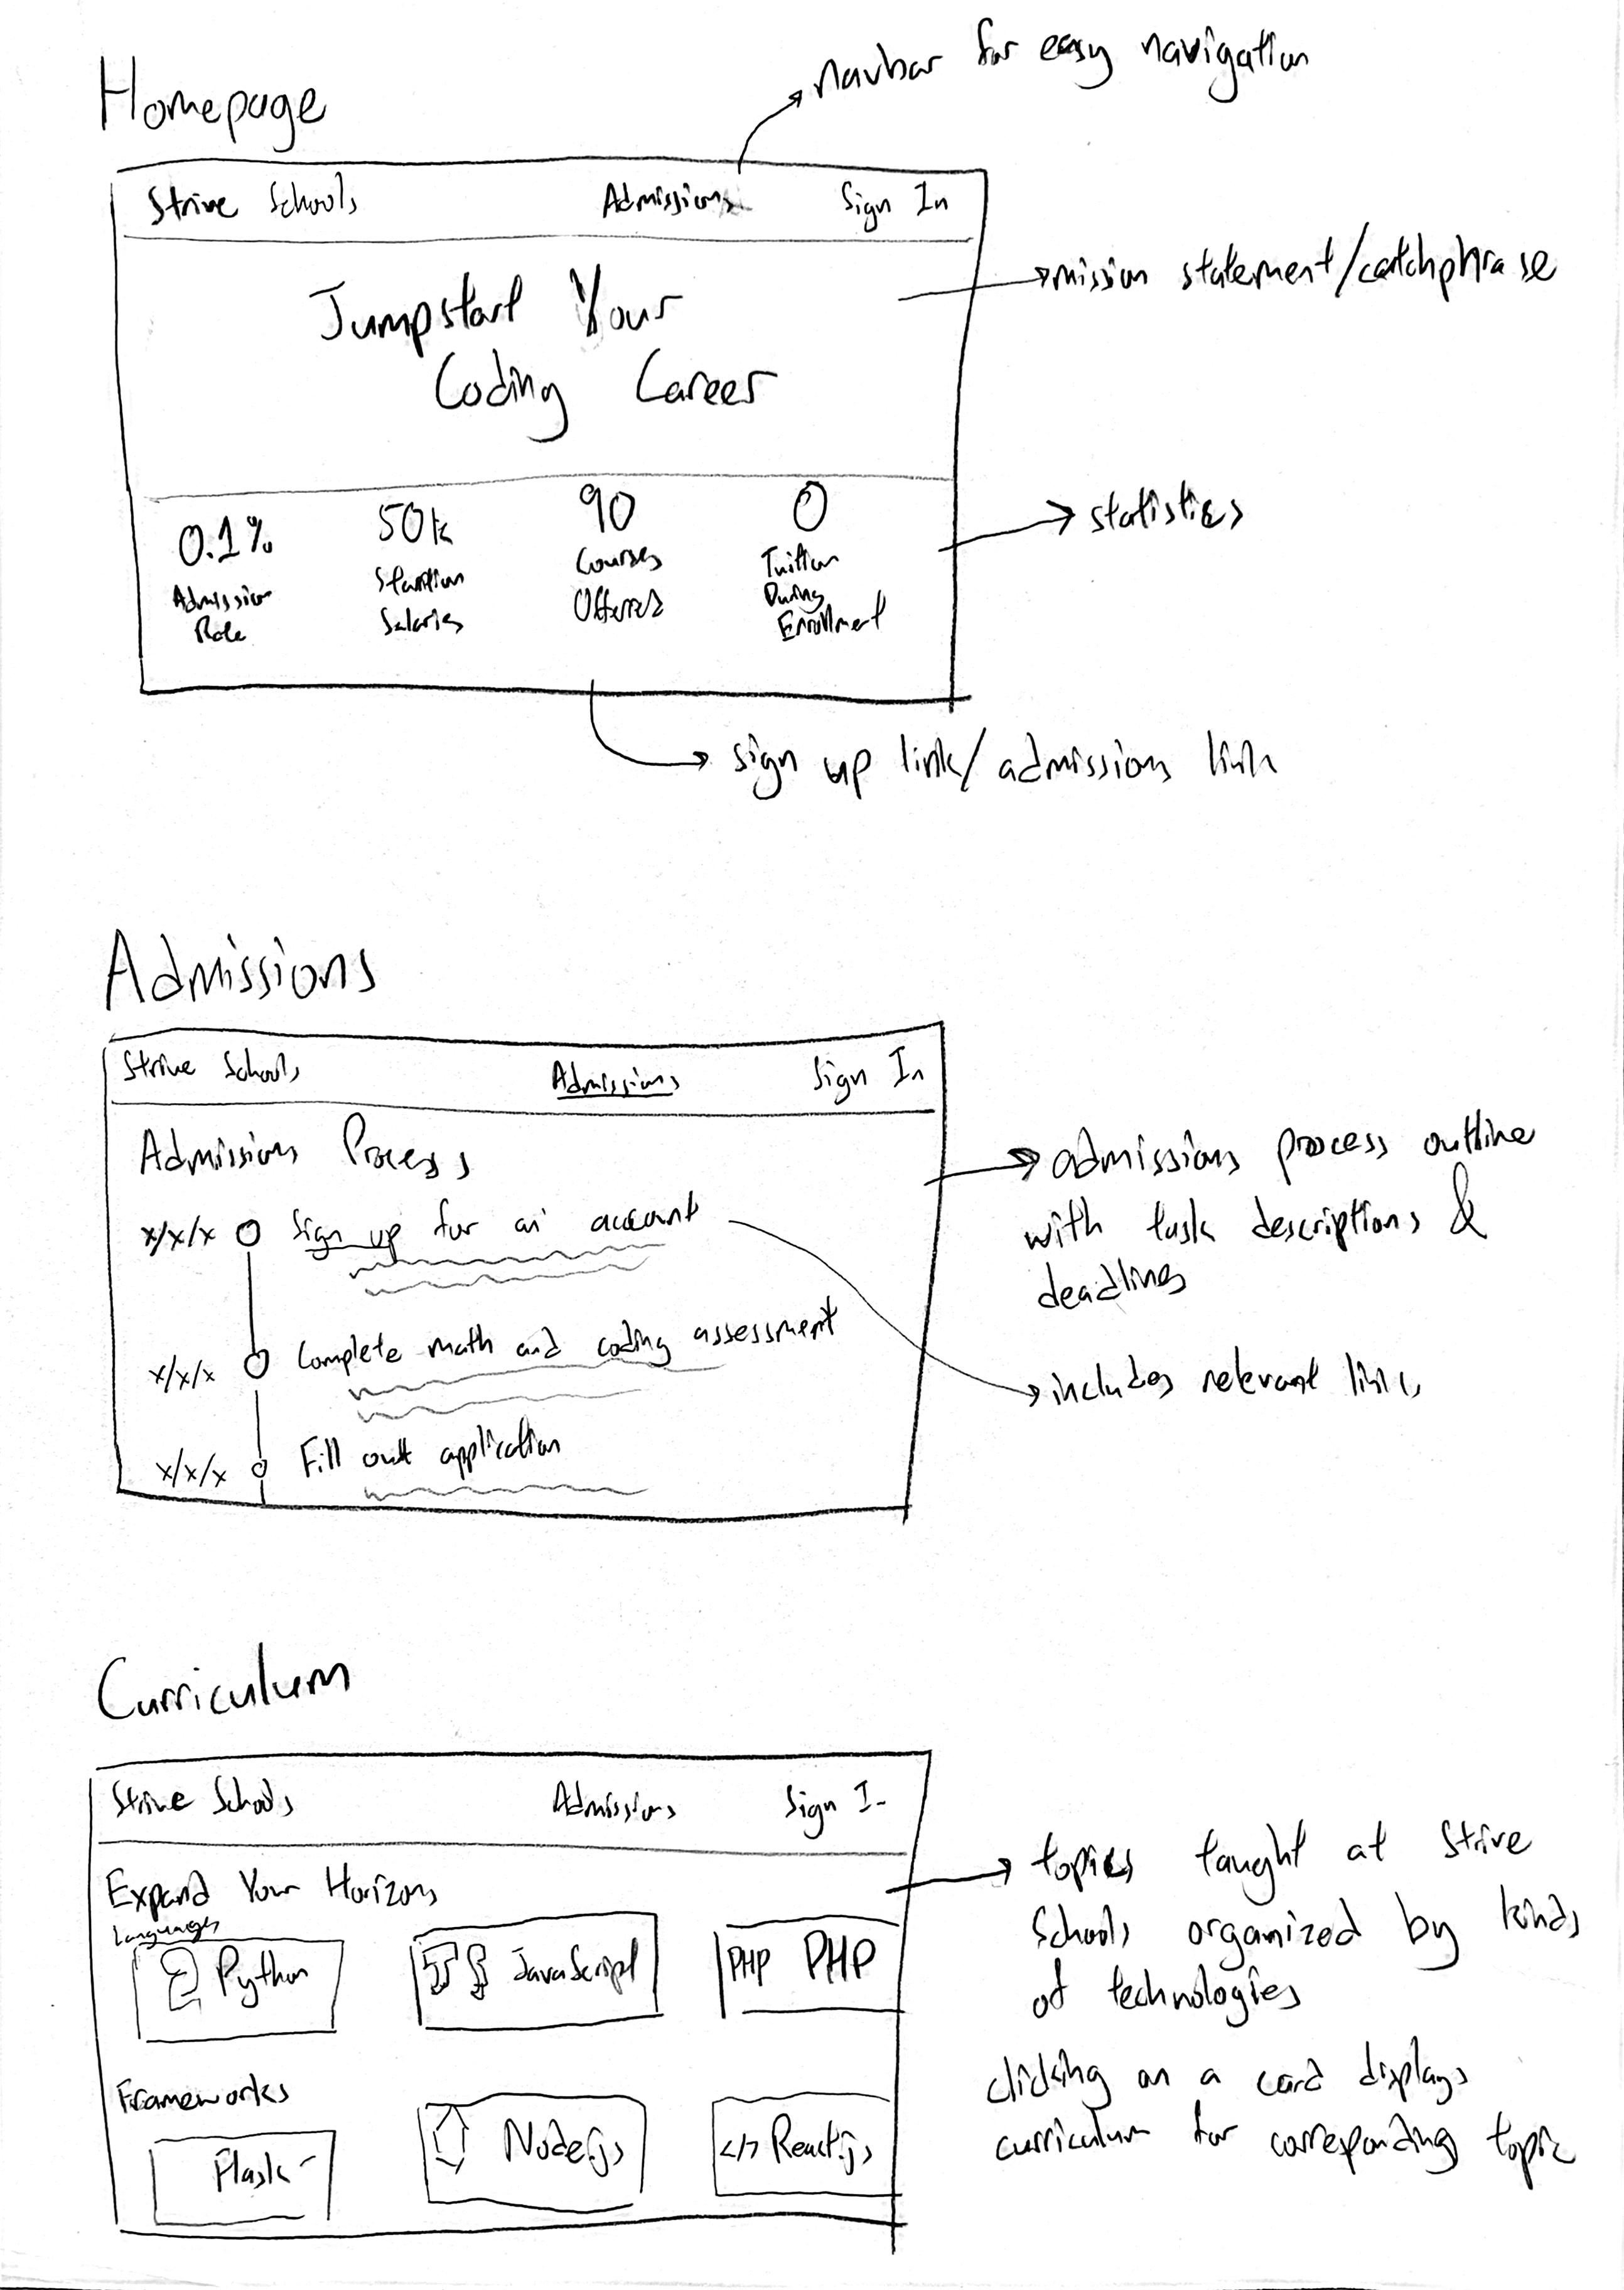 Homepage
navbar for easy navigation
Strive Schools Admissions Sign In
Jumpstart Your
Coding Career
mission statement/catchphrase
0.1% 50k 90 0
Admission Salaries Courses Tuition
Rate Offered During
Enrollment
statistics
sign up link/admissions link
Admissions
Strive Schools Admissions Sign In
Admissions Process
x/x/x Sign up for an account
x/x/x Complete math and coding assessment
x/x/x Fill out application
admissions process outline
with task descriptions &
deadlines
includes relevant links
Curriculum
Strive Schools Admissions Sign In
Expand Your Horizons
Languages
Python JS JavaScript PHP PHP
Frameworks
Flask Node.js </> React.js
topics taught at Strive
Schools organized by kinds
of technologies
clicking on a card displays
curriculum for corresponding topic